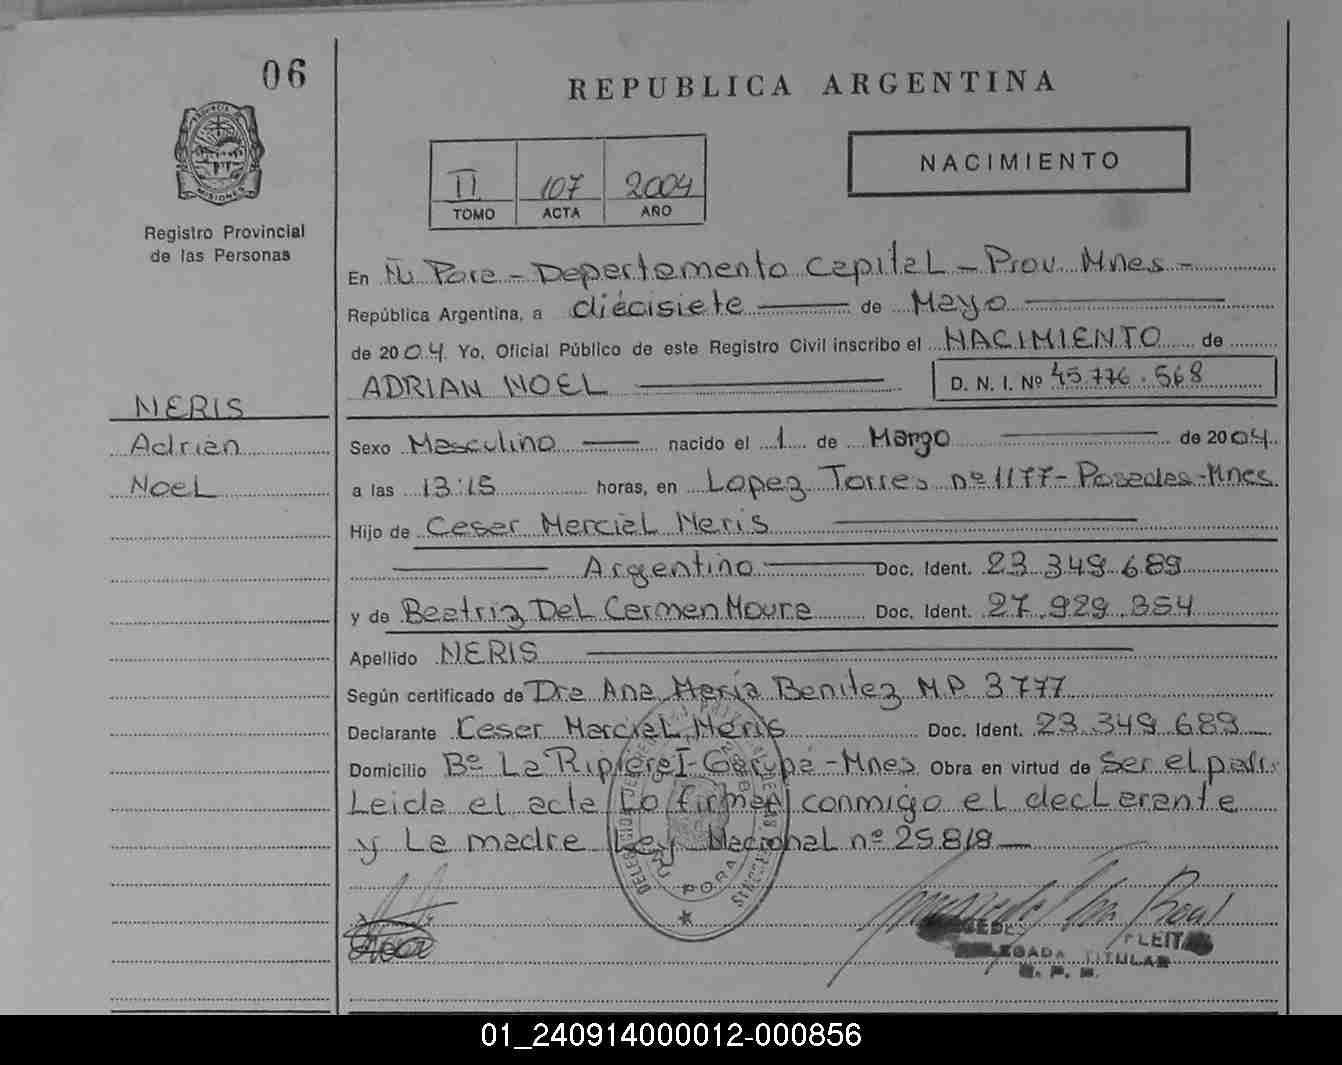 06
REPUBLICA ARGENTINA
MISIONES
Registro Provincial
de las Personas
II 107 2004
TOMO ACTA AÑO
NACIMIENTO
En Ñu Pora - Departamento Capital - Prov. Mnes -
República Argentina, a diecisiete de Mayo
de 2004. Yo, Oficial Público de este Registro Civil inscribo el NACIMIENTO de
ADRIAN NOEL D. N. I. Nº 45.776.568
NERIS
Adrian
Noel
Sexo Masculino nacido el 1 de Marzo de 2004.
a las 13:15 horas, en Lopez Torres nº 1177 - Posadas - Mnes.
Hijo de Cesar Marcial Neris
Argentino Doc. Ident. 23.349.689
y de Beatriz Del Carmen Moura Doc. Ident. 27.929.354
Apellido NERIS
Según certificado de Dra Ana María Benitez M.P. 3777
Declarante Cesar Marcial Neris Doc. Ident. 23.349.689
Domicilio Bº La Ripiera I - Garupá - Mnes Obra en virtud de Ser el padre
Leida el acta Lo firman conmigo el declarante
y La madre Ley Nacional nº 25.818
PORA
DELEGADA TITULAR
R. P. P.
01_240914000012-000856